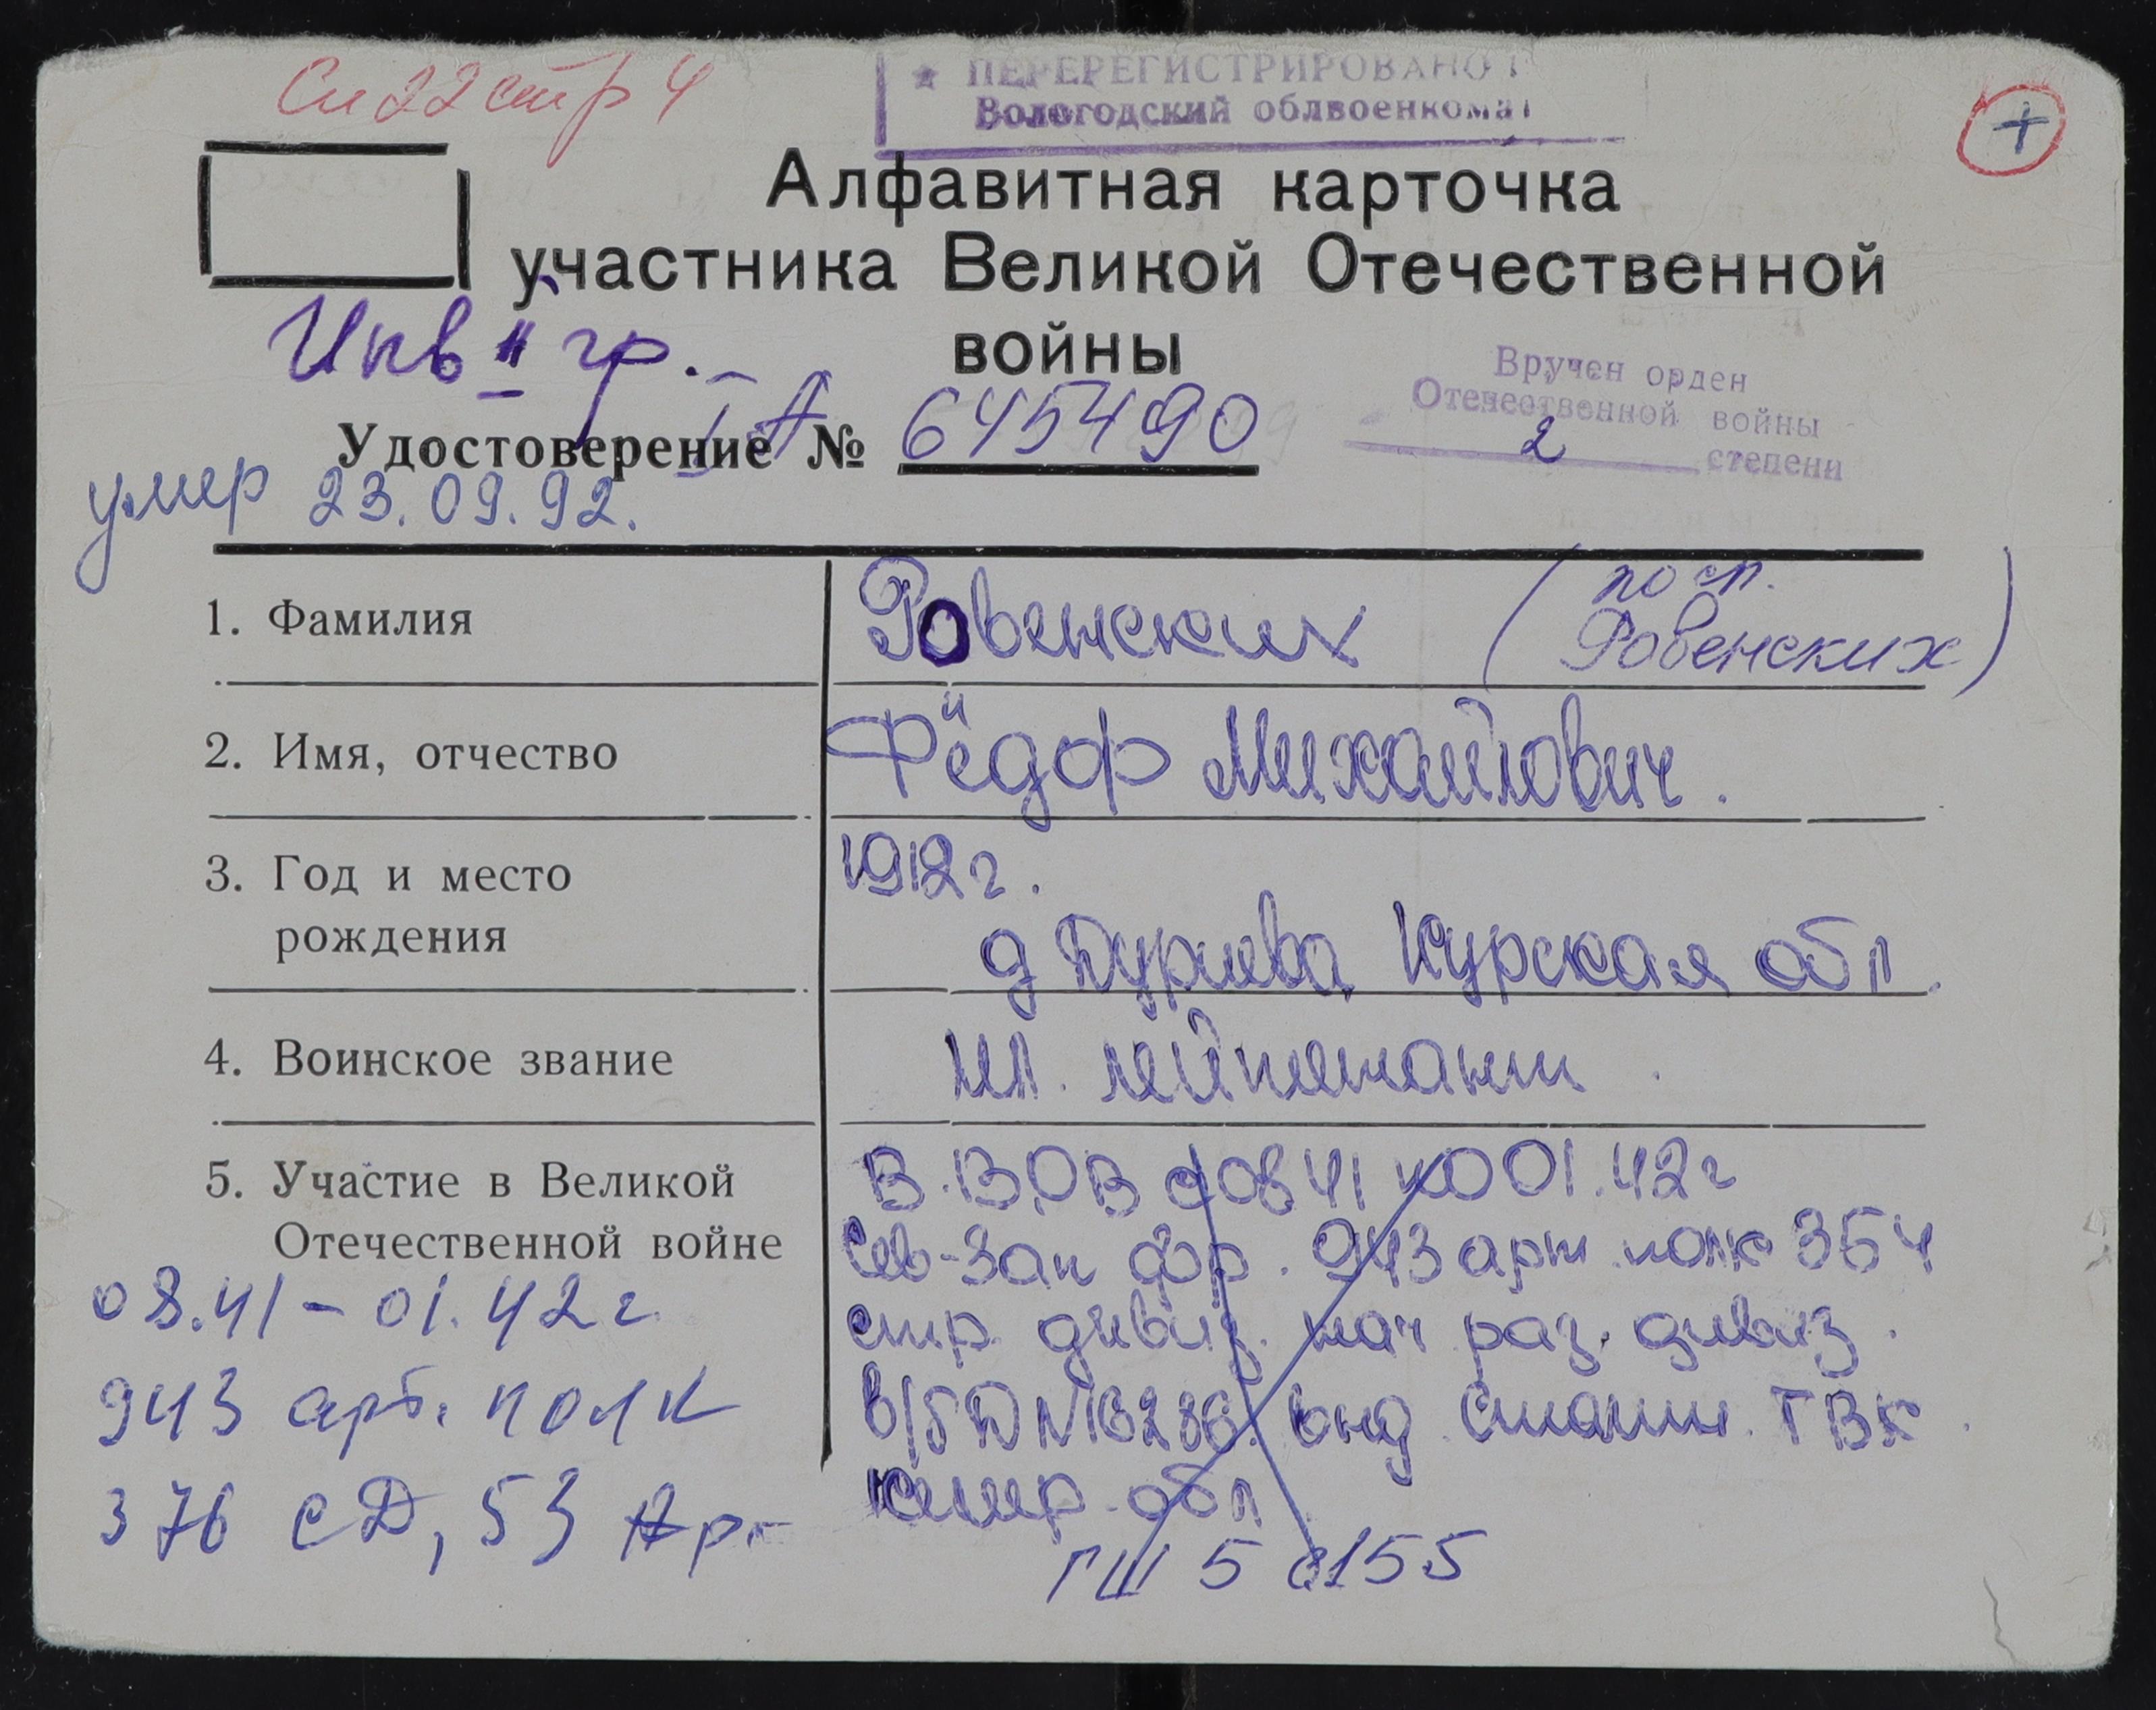 Сп 22 стр 4
★ ПЕРЕРЕГИСТРИРОВАНО
Вологодский облвоенкомат
+
Алфавитная карточка
участника Великой Отечественной
войны
Инв II гр.
Вручен орден
Отечественной войны
2 степени
Удостоверение № 645490
умер 23.09.92.
1. Фамилия Ровенских (по сп. Ровенских)
2. Имя, отчество Фёдор Михайлович.
3. Год и место 1912 г.
рождения д Курская обл.
4. Воинское звание мл. лейтенант.
5. Участие в Великой В. В.О.В с 08 41 по 01.42 г
Отечественной войне Сев-Зап фр. 943 арт. полк 364
08.41 – 01.42 г. стр. дивиз. нач раз. дивиз.
943 арт. полк
376 СД, 53 Ар- обл
ГШ 5 с155